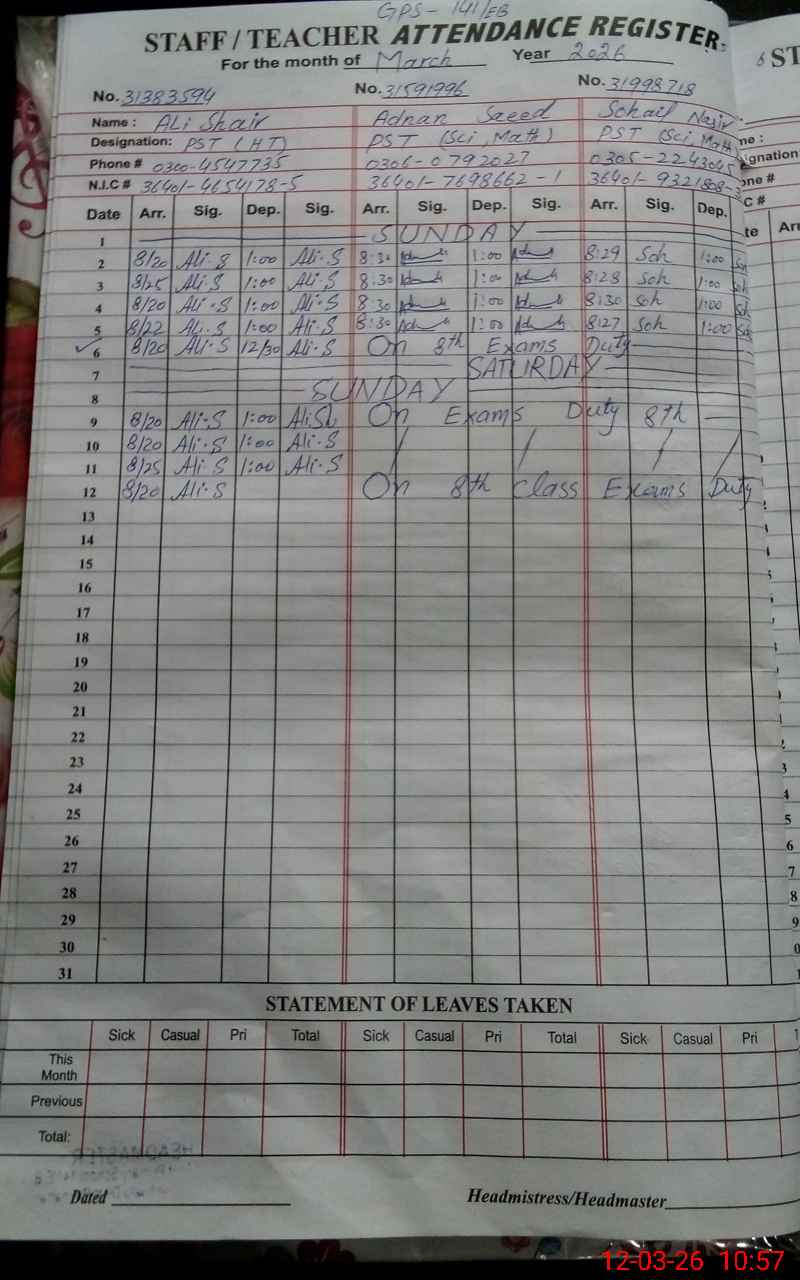 GPS - 141/EB
STAFF / TEACHER ATTENDANCE REGISTER
For the month of March Year 2026
No. 31383594 No. 31591996 No. 31998718
Name : Ali Shair Adnan Saeed Sohail Nasir
Designation: PST (HT) PST (Sci, Math) PST (Sci, Math
Phone # 0300-4547735 0306-0792027 0305-2243045
N.I.C # 36401-4654178-5 36401-7698662-1 36401-9321808-
Date Arr. Sig. Dep. Sig. Arr. Sig. Dep. Sig. Arr. Sig. Dep.
1 SUNDAY
2 8/20 Ali-S 1:00 Ali-S 8:30 1:00 8:29 Soh 1:00 Soh
3 8/25 Ali-S 1:00 Ali-S 8:30 1:00 8:28 Soh 1:00 Soh
4 8/20 Ali-S 1:00 Ali-S 8:30 1:00 8:30 Soh 1:00 Soh
5 8/22 Ali-S 1:00 Ali-S 8:30 1:00 8:27 Soh 1:00 Soh
6 8/20 Ali-S 12/30 Ali-S On 8th Exams Duty
7 SATURDAY
8 SUNDAY
9 8/20 Ali-S 1:00 Ali.Sh On Exams Duty 8th
10 8/20 Ali-S 1:00 Ali-S / / / /
11 8/25 Ali-S 1:00 Ali-S
12 8/20 Ali-S On 8th Class Exams Duty
13
14
15
16
17
18
19
20
21
22
23
24
25
26
27
28
29
30
31
STATEMENT OF LEAVES TAKEN
Sick Casual Pri Total Sick Casual Pri Total Sick Casual Pri
This Month
Previous
Total:
HEADMASTER
Dated Headmistress/Headmaster
12-03-26 10:57